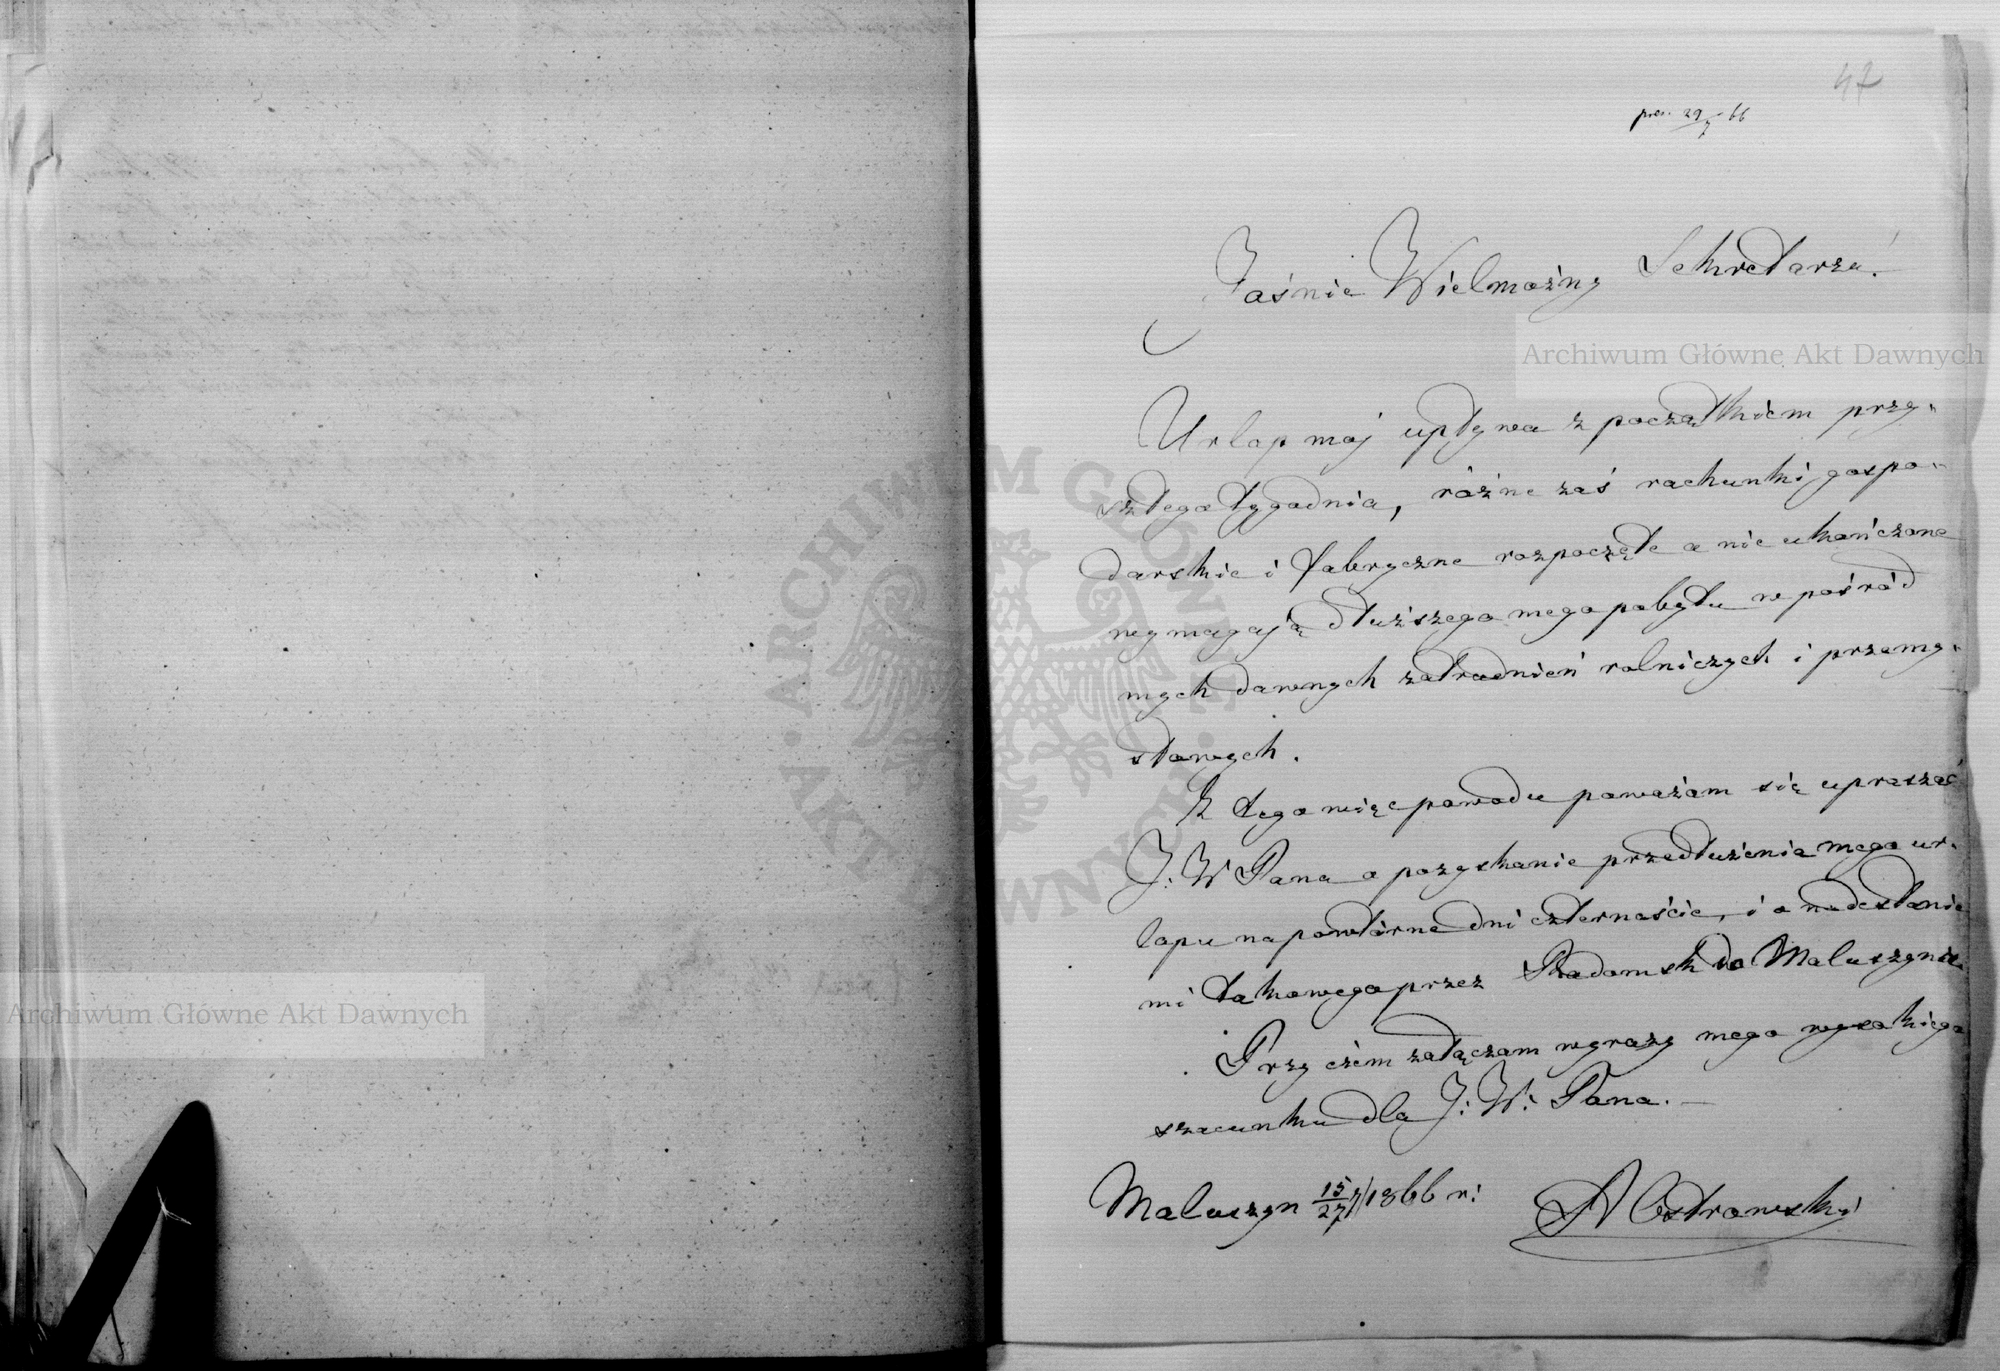 47
pres. 29/7 66
Jaśnie Wielmożny Sekretarzu!
Archiwum Główne Akt Dawnych
Urlop moj upływa z początkiem przy-
szłego tygodnia, różne zaś rachunki gospo-
darskie i fabryczne rozpoczęte a nie ukończone
wymagają dłuższego mego pobytu w pośród
mych dawnych zatrudnień rolniczych i przemy-
słowych.
Z tego więc powodu poważam się upraszać
J. W Pana o pozyskanie przedłużenia mego ur-
lopu na powtórne dni czternaście, i o nadesłanie
mi takowego przez Radomsk do Maluszyna.
Przy czem załączam wyrazy mego wysokiego
szacunku dla J: W: Pana.—
Maluszyn 15/27 7/1866 r:
A Ostrowski
ARCHIWUM GŁÓWNE
AKT DAWNYCH
Archiwum Główne Akt Dawnych